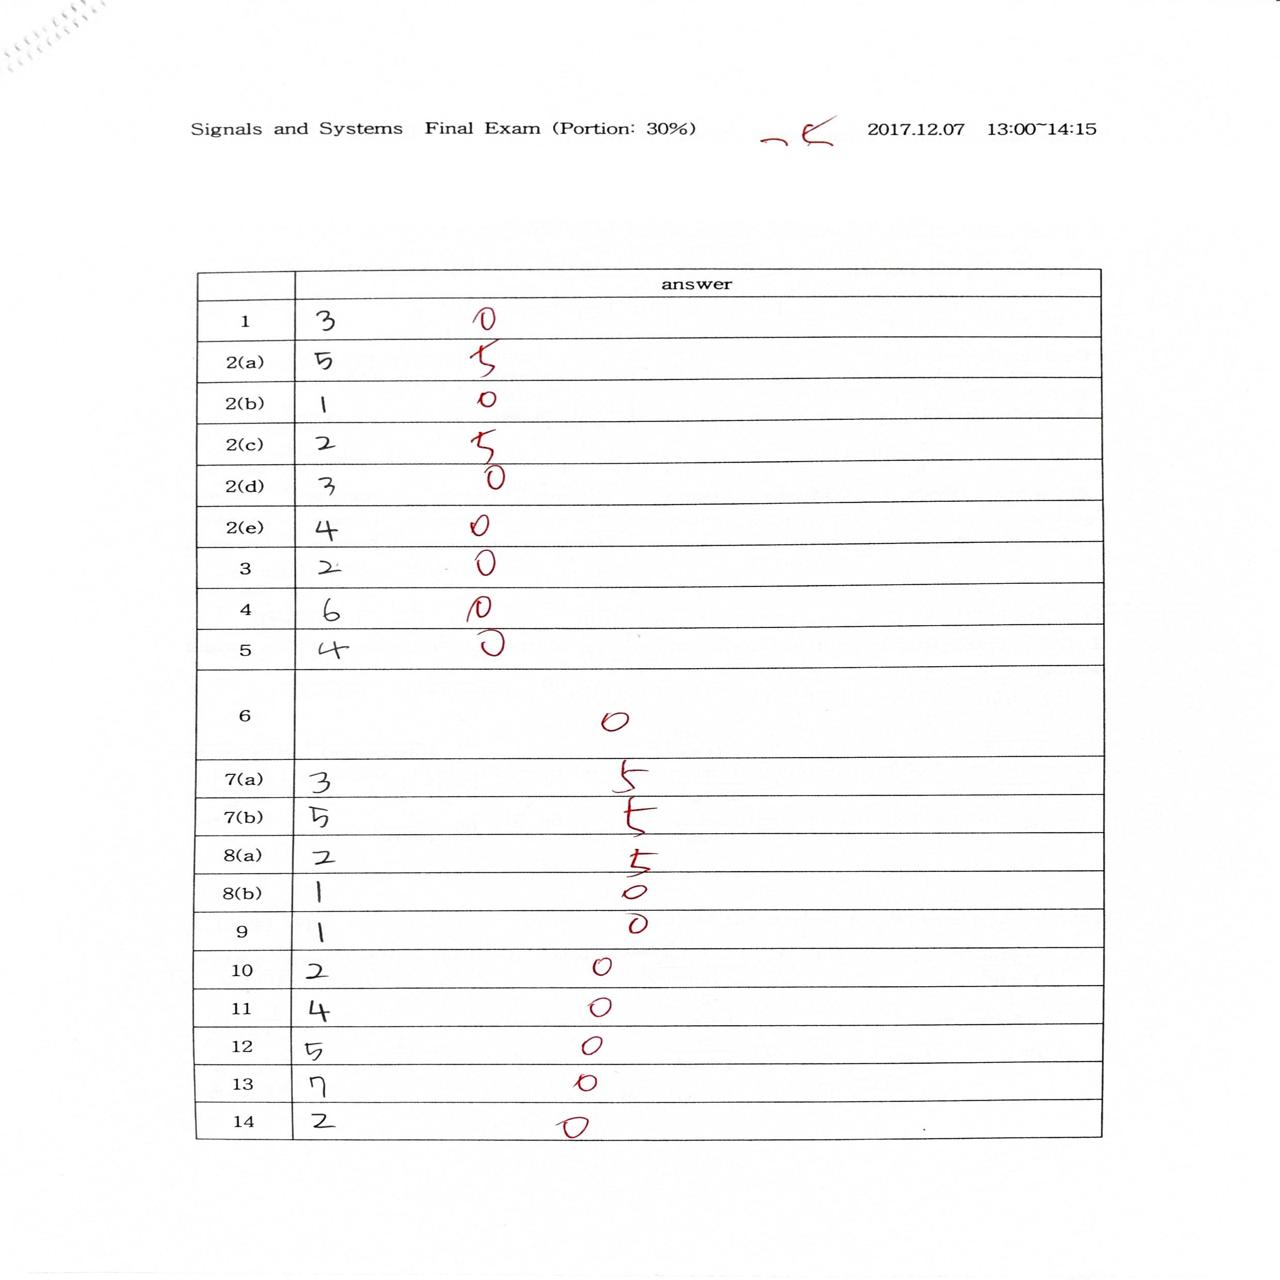 Signals and Systems Final Exam (Portion: 30%) 2017.12.07 13:00~14:15
answer
1 3 0
2(a) 5 5
2(b) 1 0
2(c) 2 5
2(d) 3 0
2(e) 4 0
3 2 0
4 6 0
5 4 0
6 0
7(a) 3 5
7(b) 5 5
8(a) 2 5
8(b) 1 0
9 1 0
10 2 0
11 4 0
12 5 0
13 7 0
14 2 0